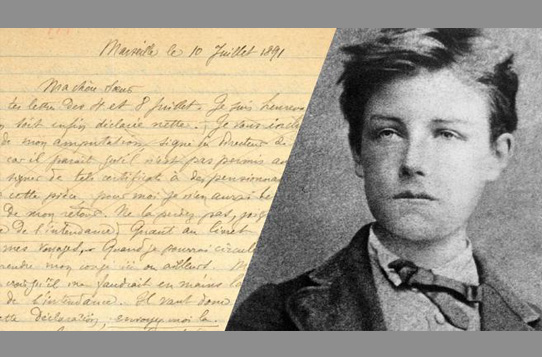 Marseille le 10 Juillet 1891
Ma chère Sœur
tes lettres des 4 et 8 Juillet. Je suis heureux
soit enfin déclarée nette.
de mon amputation signé du directeur de
car il paraît qu'il n'est pas permis au
signer de tels certificats à des pensionnaires
cette pièce, pour moi je n'en aurai be
de mon retour. Ne la perdez pas,
de l'intendance. Quant au livret
mes voyages. Quand je pourrai circuler
prendre mon congé ici ou ailleurs.
vaudrait en mains la
de l'intendance. Il faut donc
cette déclaration, envoyez moi la